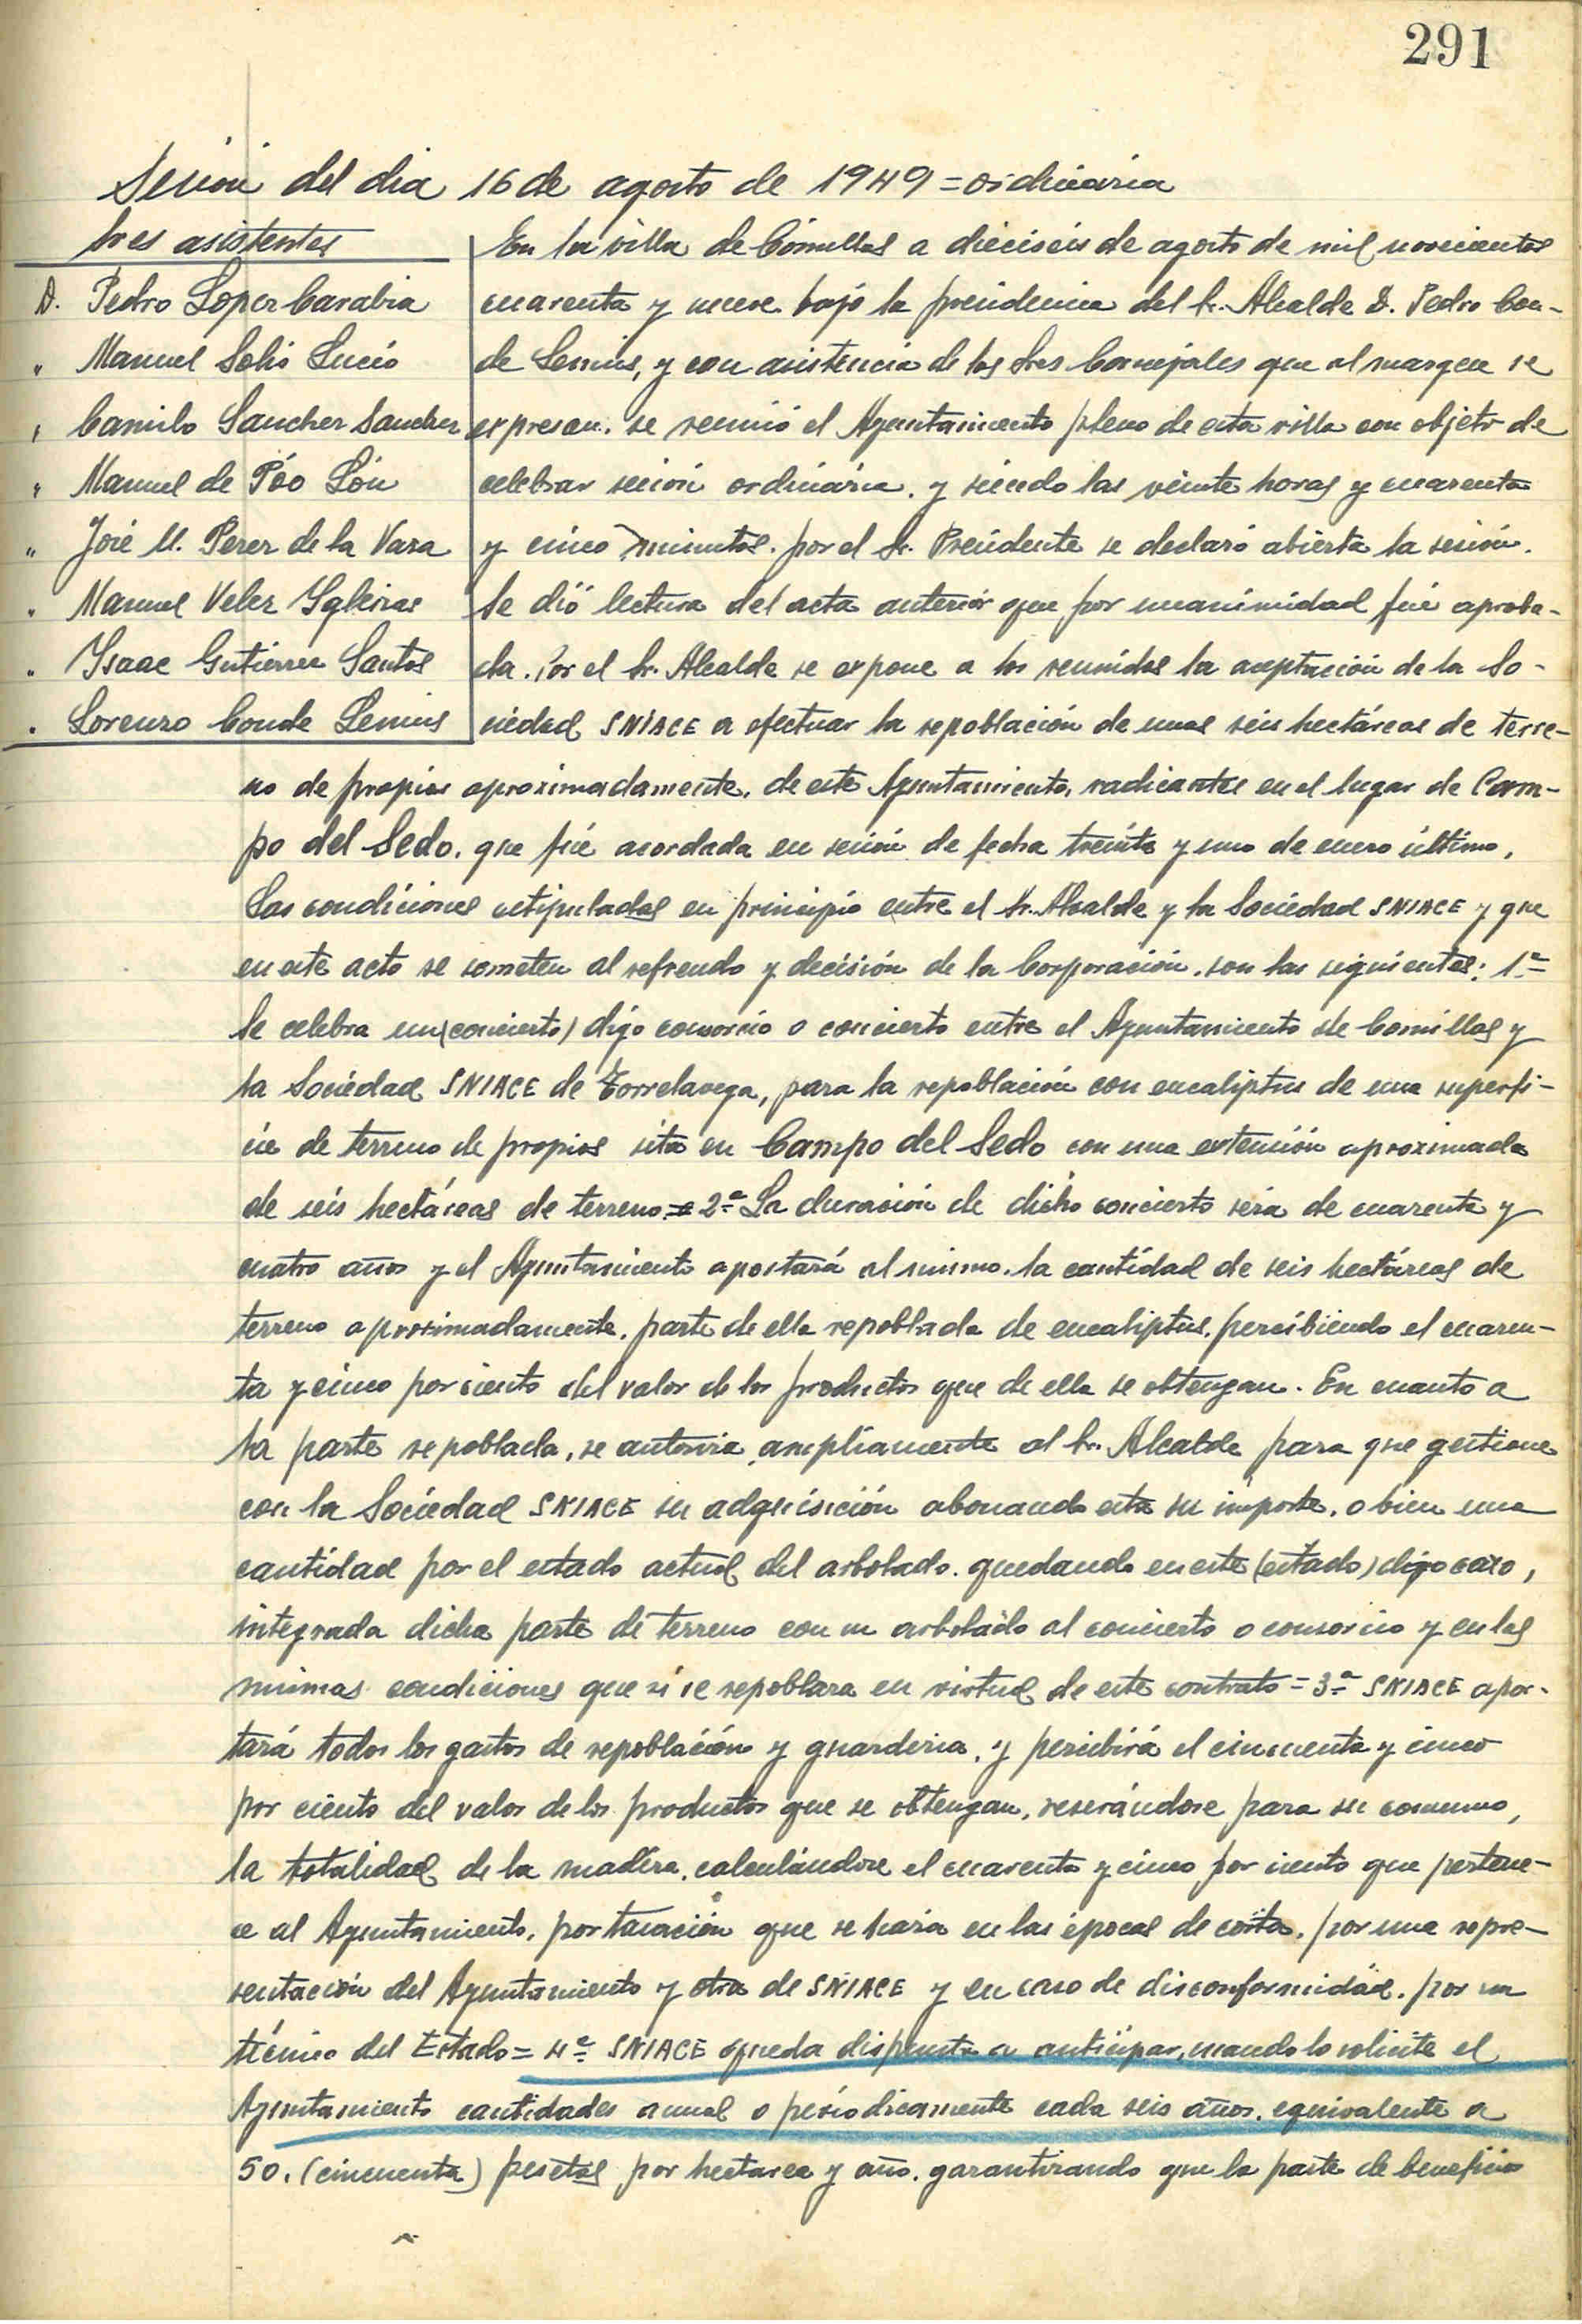 291
Sesión del dia 16 de agosto de 1949 = ordinaria
Sres asistentes
D. Pedro Lopez Carabia
" Manuel Solis Lucio
" Camilo Sanchez Sanchez
" Manuel de Póo Lón
" José M. Perez de la Vara
" Manuel Velez Yglesias
" Ysaac Gutierrez Santos
" Lorenzo Conde Lemus
En la villa de Cómillas a dieciseis de agosto de mil novecientos
cuarenta y nueve. bajo la presidencia del Sr. Alcalde D. Pedro Con-
de Lemus, y con asistencia de los Sres Concejales que al margen se
expresan. se reunió el Ayuntamiento pleno de esta villa con objeto de
celebrar sesión ordinaria. y siendo las veinte horas y cuarenta
y cinco minutos. por el Sr. Presidente se declaró abierta la sesión.
Se dió lectura del acta anterior que por unanimidad fué aproba-
da. Por el Sr. Alcalde se expone a los reunidos la aceptación de la So-
ciedad SNIACE a efectuar la repoblación de unas seis hectáreas de terre-
no de propios aproximadamente. de este Ayuntamiento, radicantes en el lugar de Cam-
po del Sedo. que fué acordada en sesión de fecha treinta y uno de enero último.
Las condiciones estipuladas en principio entre el Sr. Alcalde y la Sociedad SNIACE y que
en este acto se someten al refrendo y decisión de la Corporación. son las siguientes: 1ª=
Se celebra un (concierto) digo consorcio o concierto entre el Ayuntamiento de Comillas y
la Sociedad SNIACE de Torrelavega, para la repoblación con eucaliptus de una superfi-
cie de terreno de propios sita en Campo del Sedo con una extensión aproximada
de seis hectáreas de terreno = 2ª La duración de dicho concierto será de cuarenta y
cuatro años y el Ayuntamiento aportará al mismo. la cantidad de seis hectáreas de
terreno aproximadamente. parte de ella repoblada de eucaliptus. percibiendo el cuaren-
ta y cinco por ciento del valor de los productos que de ella se obtengan. En cuanto a
la parte repoblada, se autoriza ampliamente al Sr. Alcalde para que gestione
con la Sociedad SNIACE su adquisición abonando esta su importe. o bien una
cantidad por el estado actual del arbolado. quedando en este (estado) digo caso,
integrada dicha parte de terreno con su arbolado al concierto o consorcio y en las
mismas condiciones que si se repoblara en virtud de este contrato = 3ª SNIACE apor-
tará todos los gastos de repoblación y guarderia, y percibirá el cincuenta y cinco
por ciento del valor de los productos que se obtengan, reserándose para su consumo,
la totalidad de la madera. calculándose el cuarenta y cinco por ciento que pertene-
ce al Ayuntamiento, por tasación que se haria en las épocas de corta. por una repre-
sentación del Ayuntamiento y otra de SNIACE y en caso de disconformidad. por un
técnico del Estado = 4ª SNIACE queda dispuesta a anticipar, cuando lo solicite el
Ayuntamiento cantidades anual o periódicamente cada seis años. equivalente a
50. (cincuenta) pesetas por hectarea y año. garantizando que la parte de beneficio